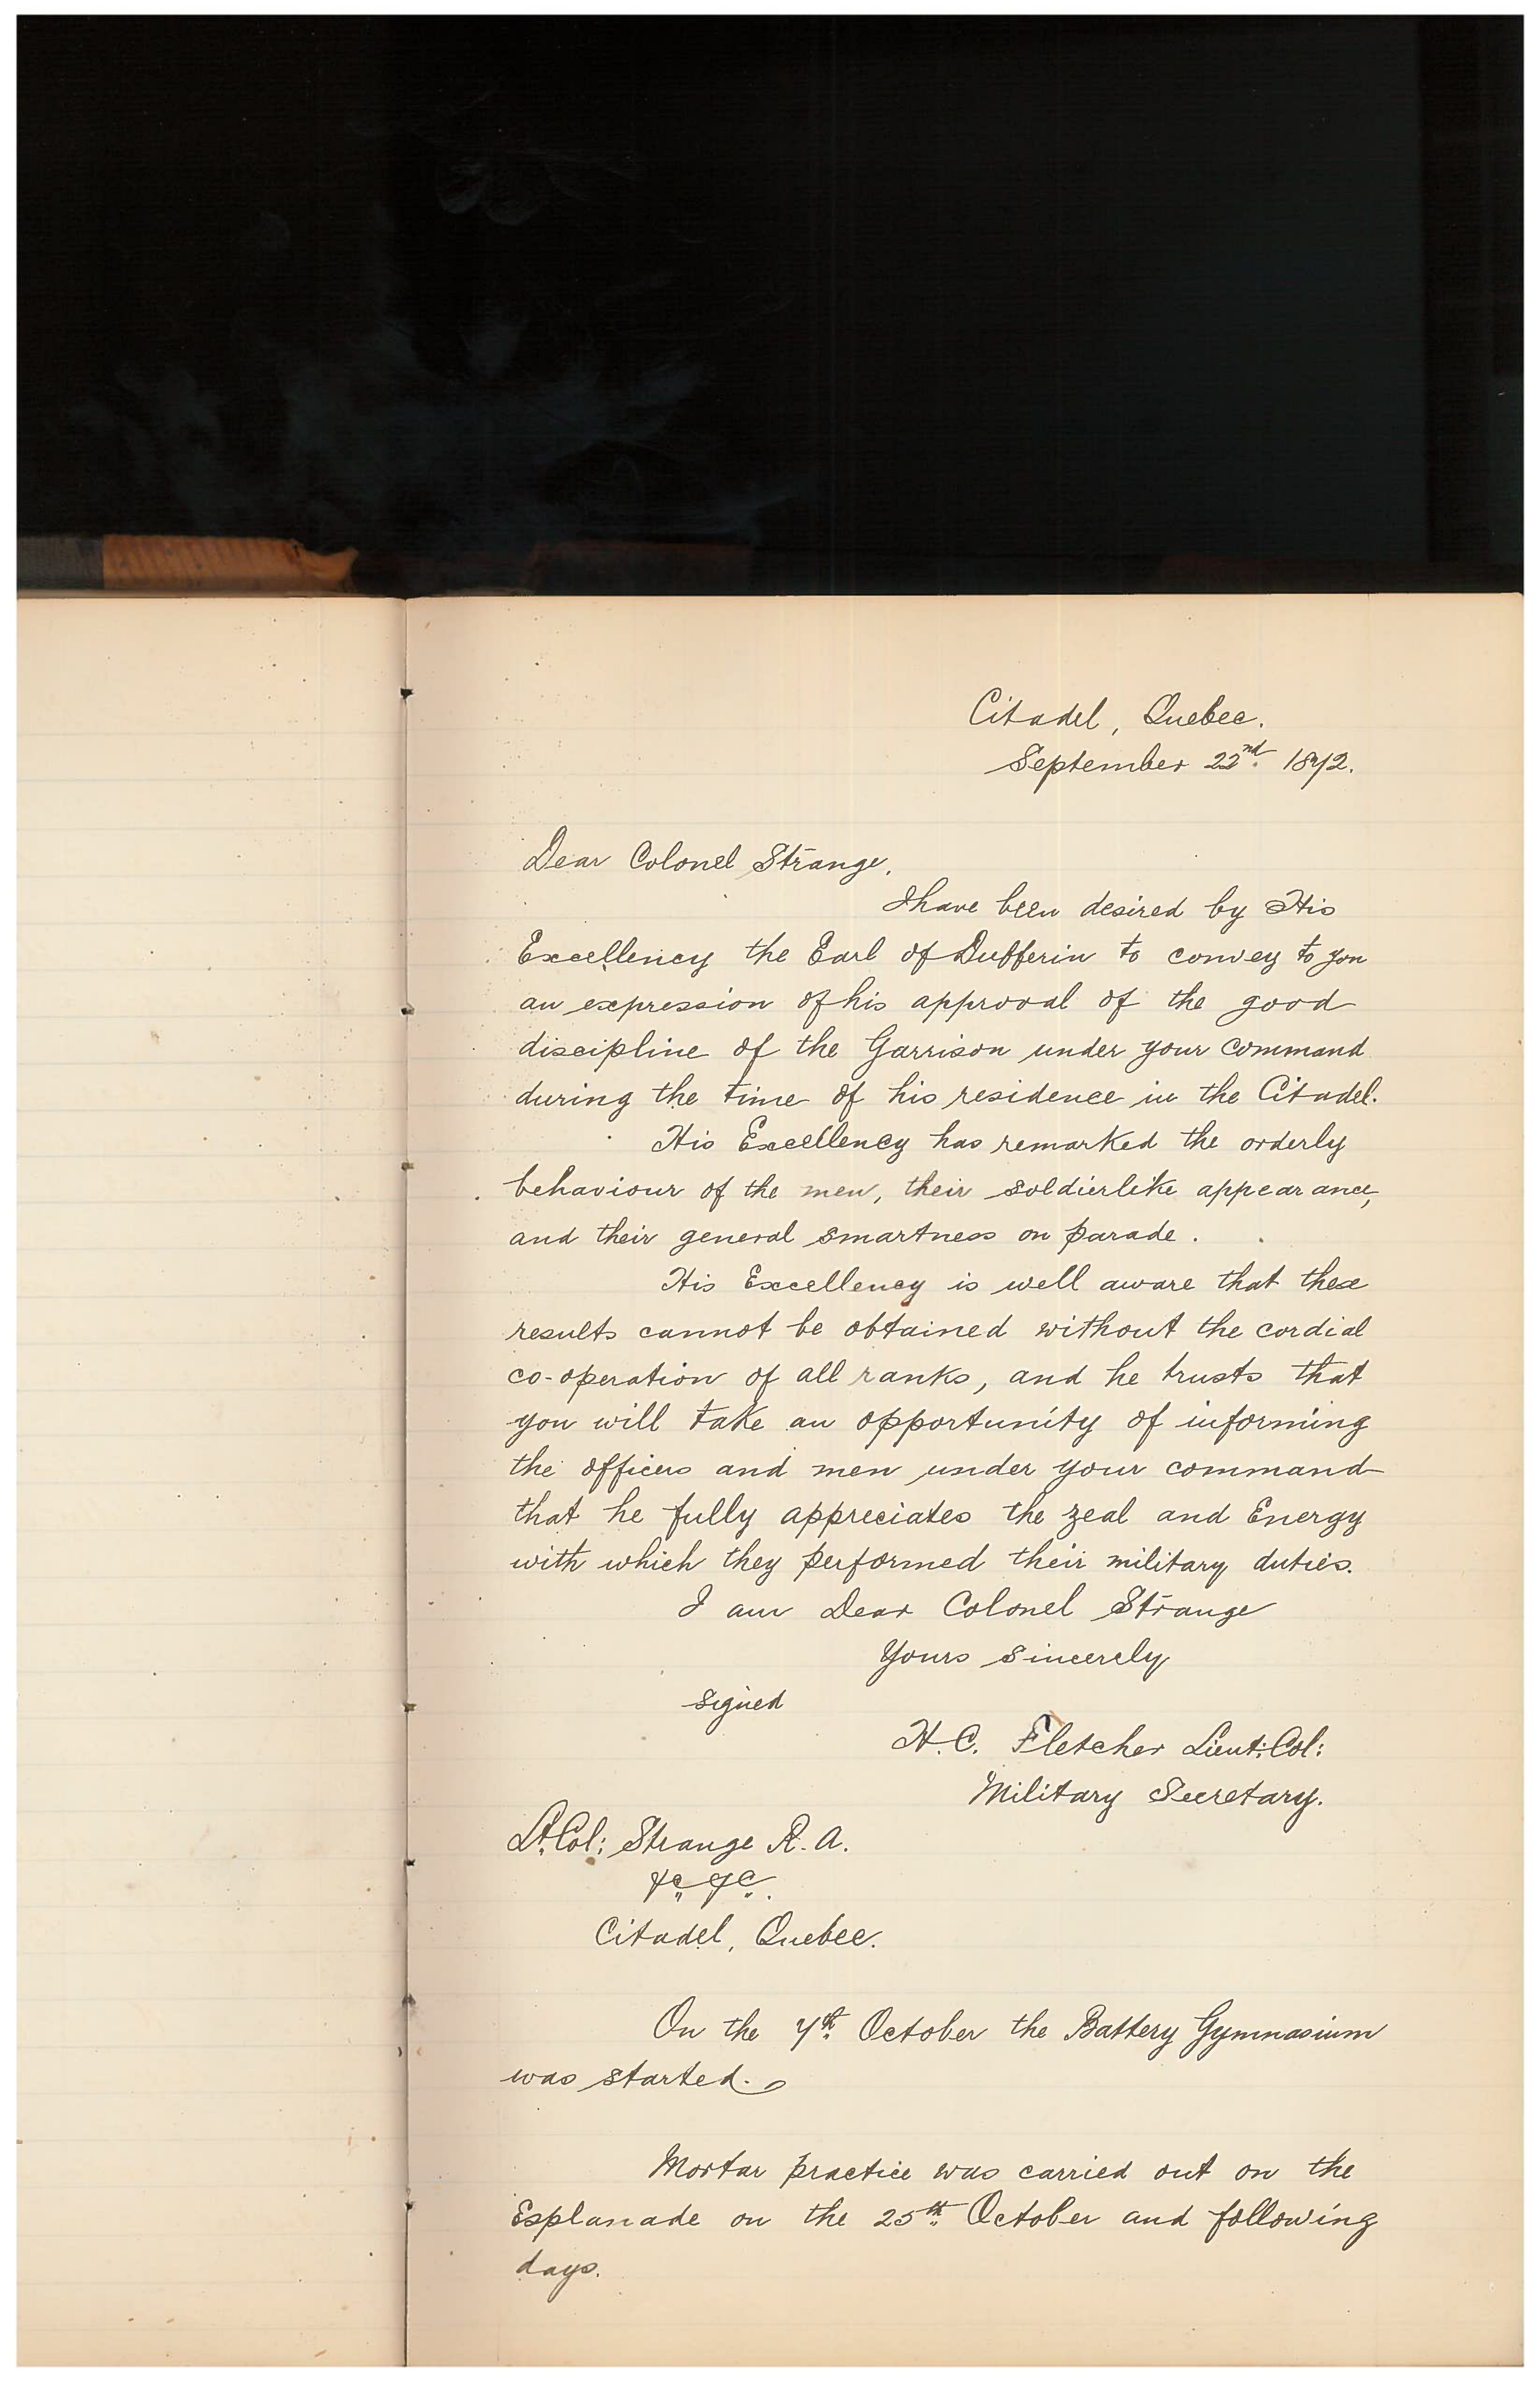 Citadel, Quebec.
September 22nd. 1872.
Dear Colonel Strange,
I have been desired by His
Excellency the Earl of Dufferin to convey to you
an expression of his approval of the good
discipline of the Garrison under your command
during the time of his residence in the Citadel.
His Excellency has remarked the orderly
behaviour of the men, their soldierlike appearance,
and their general smartness on parade.
His Excellency is well aware that these
results cannot be obtained without the cordial
co-operation of all ranks, and he trusts that
you will take an opportunity of informing
the officers and men under your command
that he fully appreciates the zeal and Energy
with which they performed their military duties.
I am Dear Colonel Strange
Yours sincerely
signed
H.C. Fletcher Lieut: Col:
Military Secretary.
Lt. Col: Strange R.A.
&c &c.
Citadel, Quebec.
On the 7th. October the Battery Gymnasium
was started.
Mortar practice was carried out on the
Esplanade on the 25th. October and following
days.